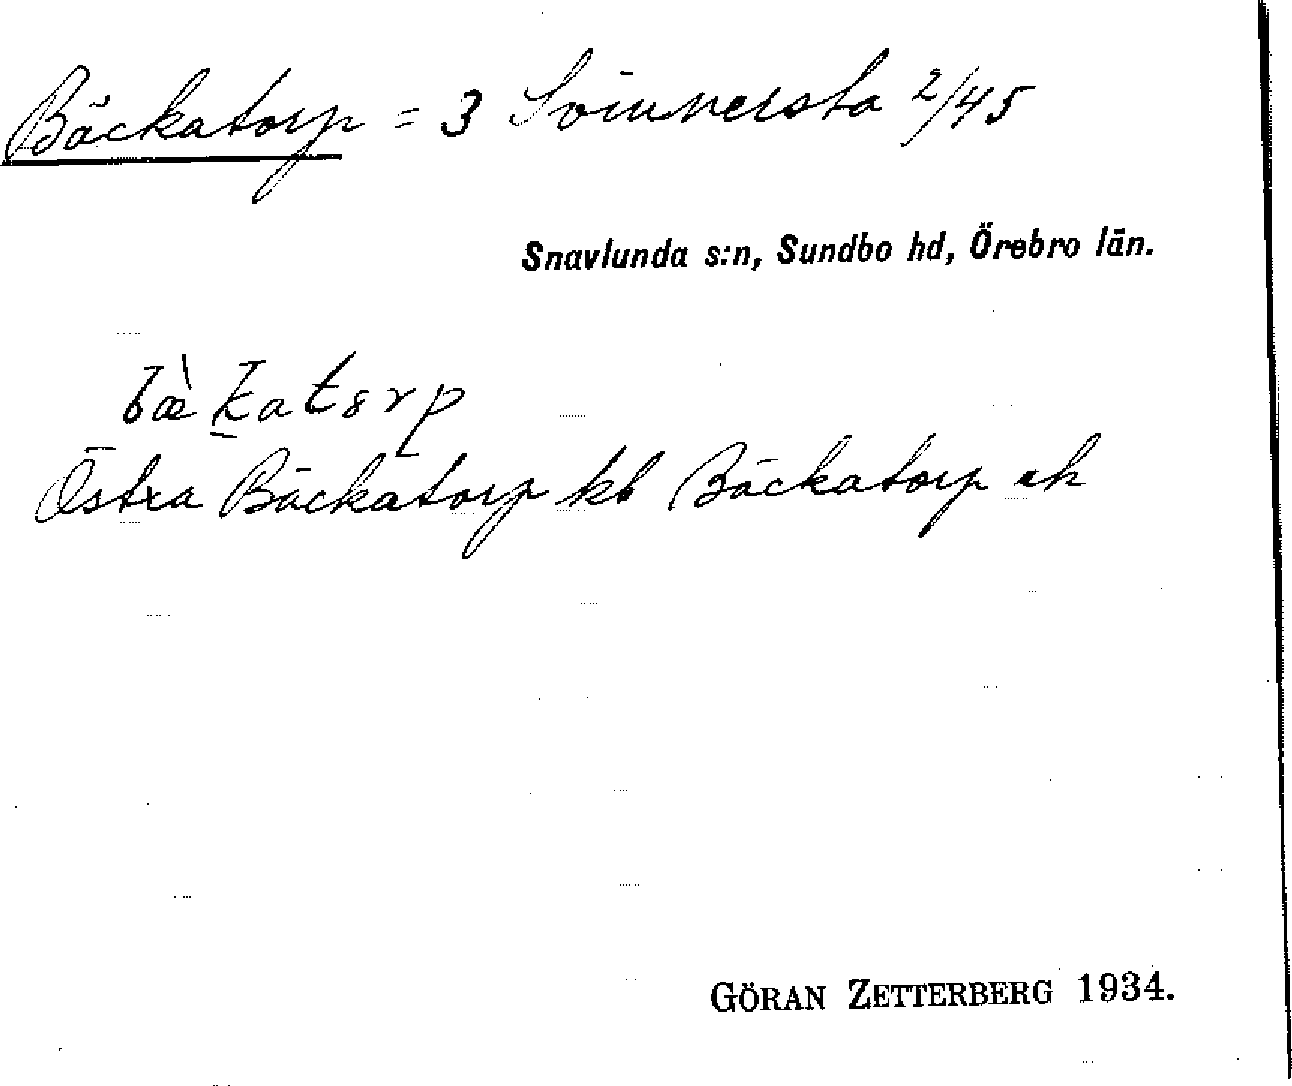 Bäckatorp = 3 Svinnersta 2/45
Snavlunda s:n, Sundbo hd, Örebro län.
bæ̀ḵatɜrp
Östra Bäckatorp kb Bäckatorp ek
GÖRAN ZETTERBERG 1934.